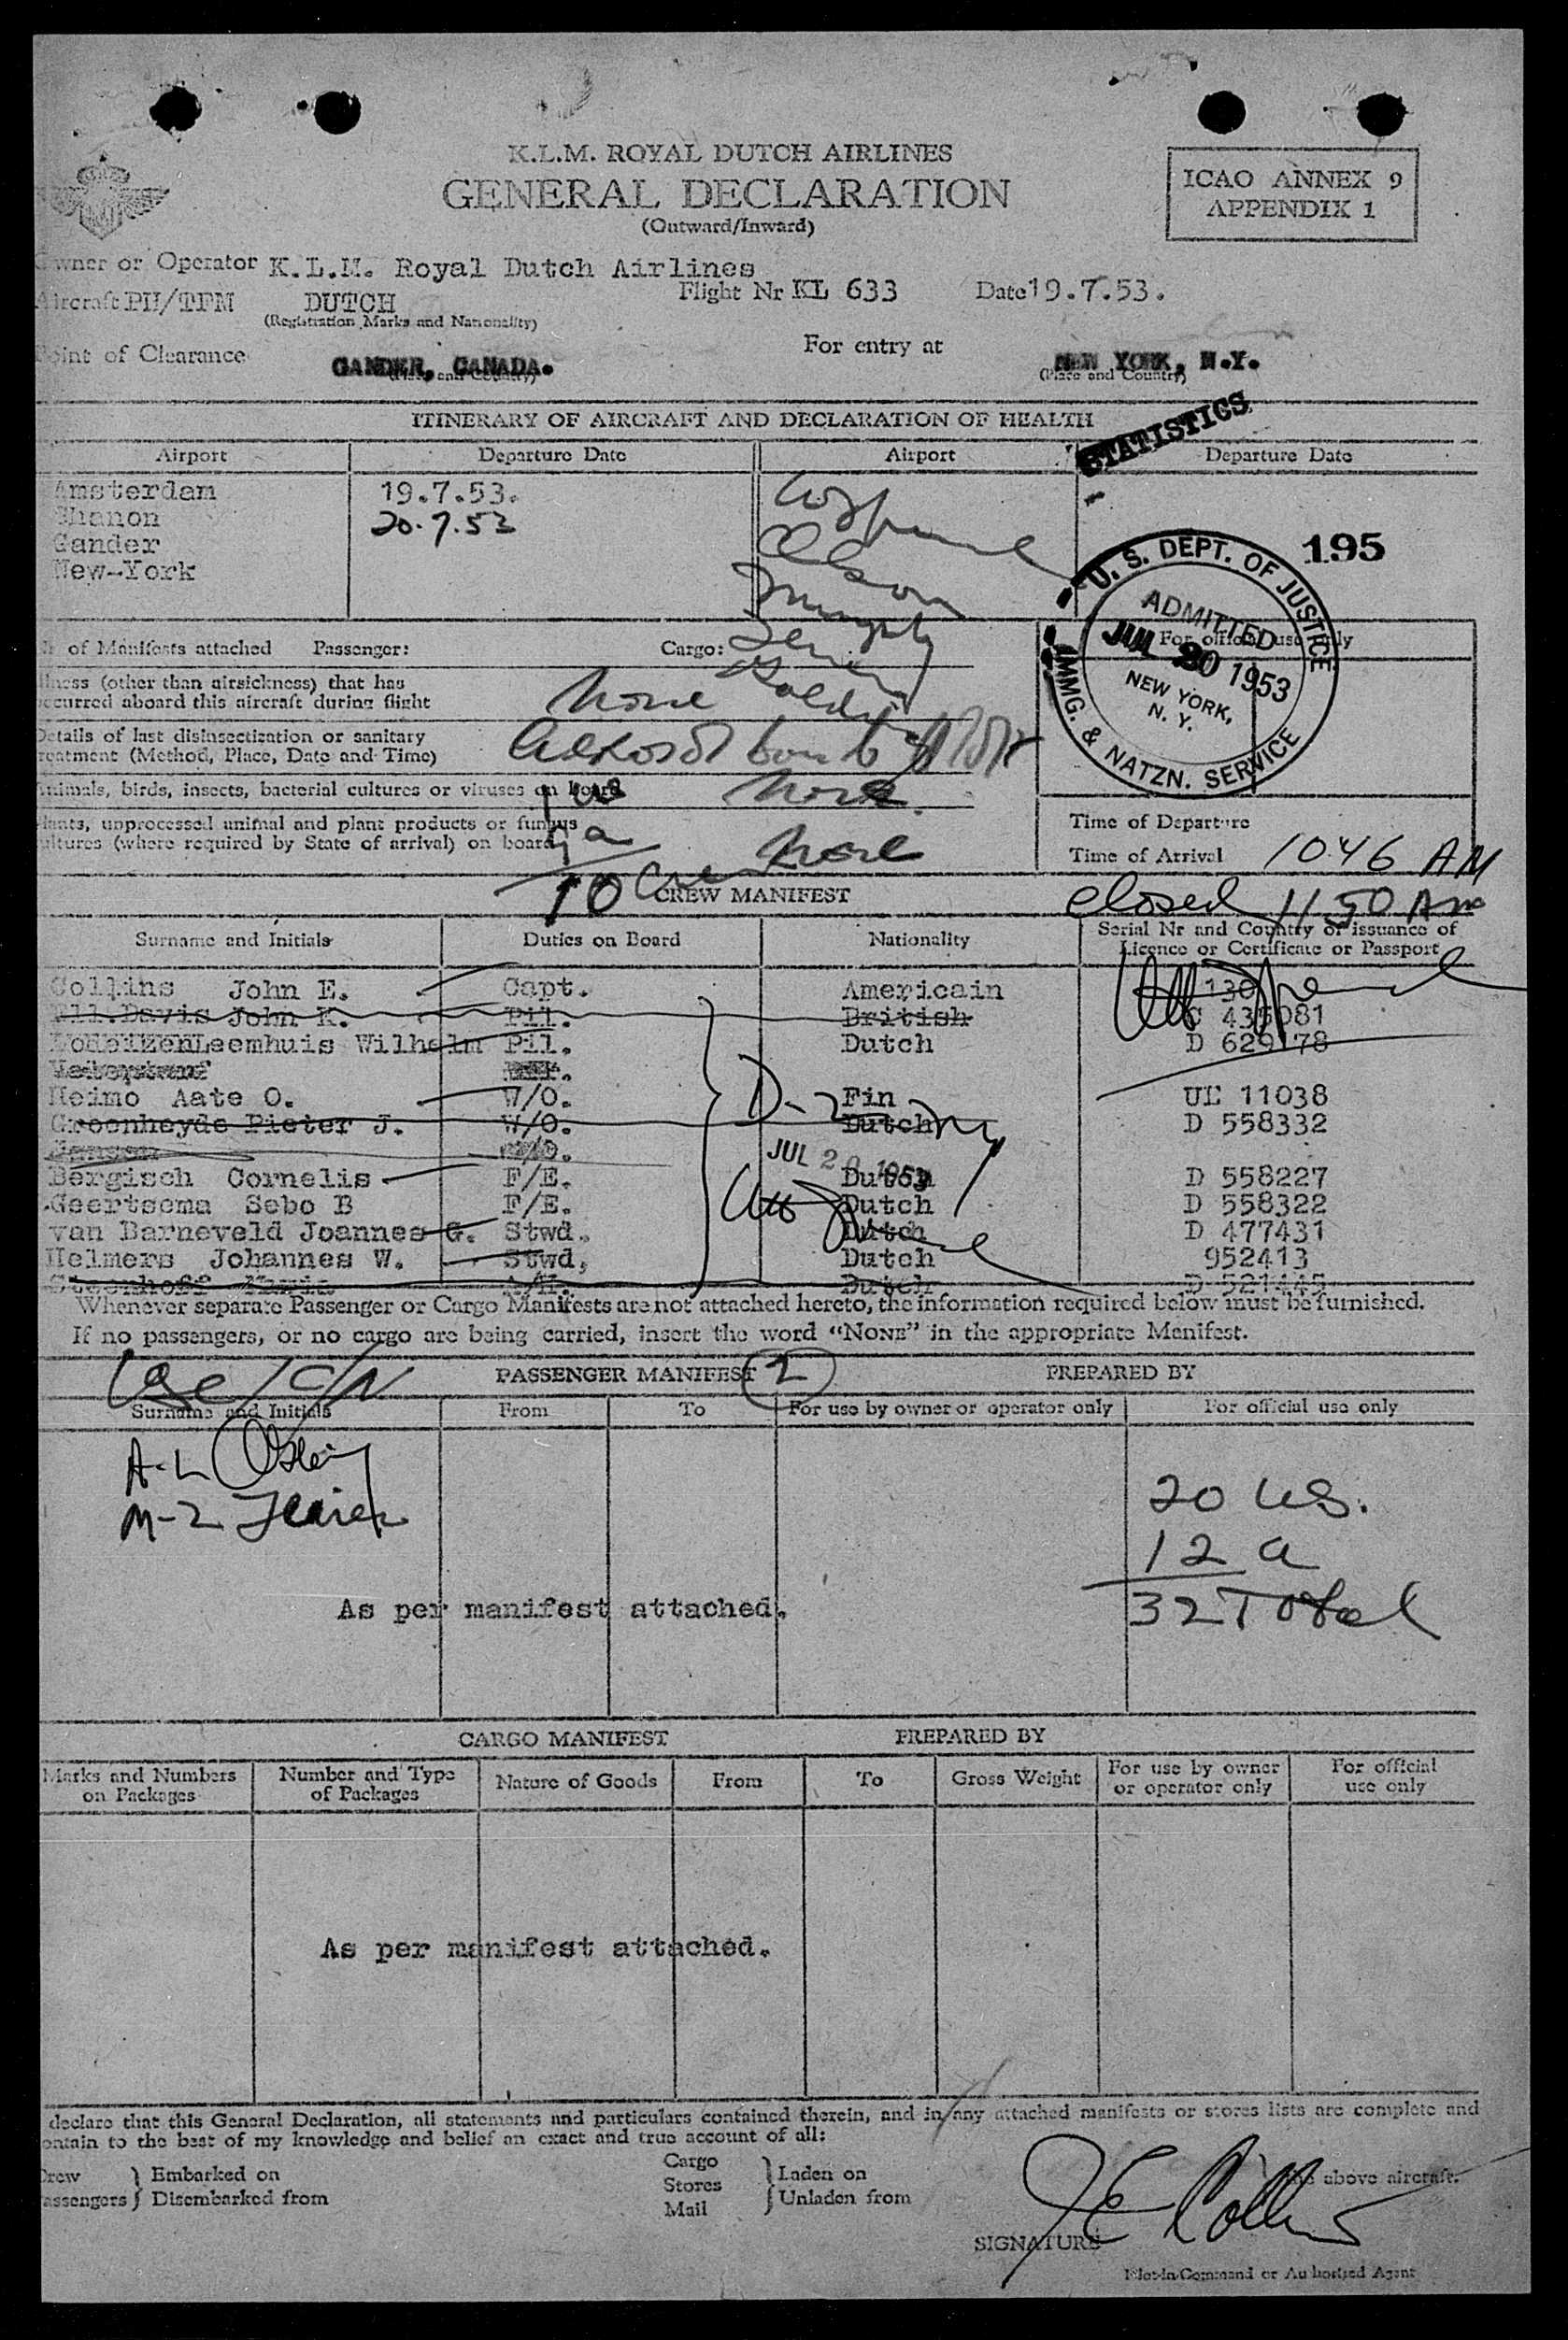 K.L.M. ROYAL DUTCH AIRLINES
GENERAL DECLARATION
(Outward/Inward)
ICAO ANNEX 9
APPENDIX 1
wner or Operator K.L.M. Royal Dutch Airlines
Aircraft PH/TFM DUTCH Flight Nr KL 633 Date 19.7.53.
(Registration Marks and Nationality)
Point of Clearance GANDER, CANADA. For entry at NEW YORK, N.Y.
(Place and Country) (Place and Country)
ITINERARY OF AIRCRAFT AND DECLARATION OF HEALTH
STATISTICS
Airport Departure Date Airport Departure Date
Amsterdam 19.7.53.
Shanon 20.7.53
Gander
New-York
195
U. S. DEPT. OF JUSTICE
ADMITTED
JUL 20 1953
NEW YORK,
N. Y.
IMMG. & NATZN. SERVICE
of Manifests attached Passenger: Cargo:
For official use only
llness (other than airsickness) that has
occurred aboard this aircraft during flight None
Details of last disinsectization or sanitary
treatment (Method, Place, Date and Time) Aerosol bomb
Animals, birds, insects, bacterial cultures or viruses on board None
Plants, unprocessed animal and plant products or fungus
cultures (where required by State of arrival) on board None
Time of Departure
Time of Arrival 1046 AM
10 Crew
CREW MANIFEST
Closed 1150 Am
Surname and Initials Duties on Board Nationality Serial Nr and Country of issuance of
Licence or Certificate or Passport
Collins John E. Capt. Americain 130
Ell.Davis John K. Pil. British C 435081
Leemhuis Wilhelm Pil. Dutch D 629178
Heimo Aate O. W/O. Fin UE 11038
Groenheyde Pieter J. W/O. Dutch D 558332
D-2
JUL 20 1953
Bergisch Cornelis F/E. Dutch D 558227
Geertsema Sebo B F/E. Dutch D 558322
van Barneveld Joannes G. Stwd. Dutch D 477431
Helmers Johannes W. Stwd, Dutch 952413
Steenhoff Maria A/H. Dutch D 521445
Whenever separate Passenger or Cargo Manifests are not attached hereto, the information required below must be furnished.
If no passengers, or no cargo are being carried, insert the word "NONE" in the appropriate Manifest.
PASSENGER MANIFEST 2 PREPARED BY
Surname and Initials From To For use by owner or operator only For official use only
A-L
M-Z
20 US.
12 a
32 Total
As per manifest attached.
CARGO MANIFEST PREPARED BY
Marks and Numbers
on Packages
Number and Type
of Packages
Nature of Goods
From
To
Gross Weight
For use by owner
or operator only
For official
use only
As per manifest attached.
declare that this General Declaration, all statements and particulars contained therein, and in any attached manifests or stores lists are complete and
ontain to the best of my knowledge and belief an exact and true account of all:
Crew
Passengers
Embarked on
Disembarked from
Cargo
Stores
Mail
Laden on
Unladen from
the above aircraft.
SIGNATURE J E Collins
Pilot-in-Command or Authorised Agent